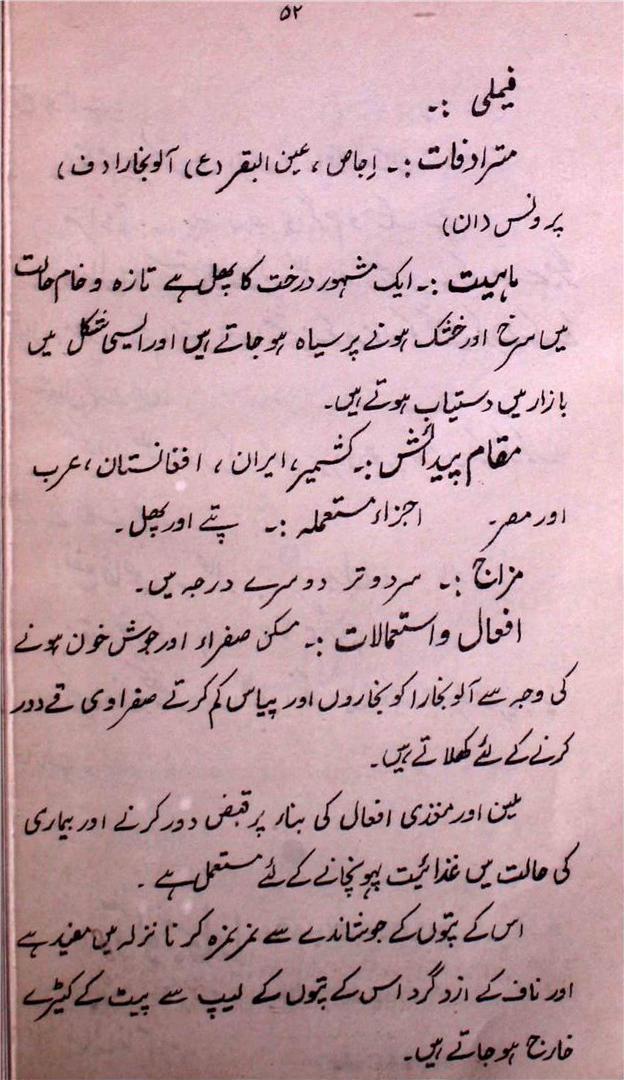 ۵۲
فیملی :۔
مترادفات :۔ اِجاص ، عین البقر (ع) آلو بخارا (ف)
پرونس (ان)
ماہیت :۔ ایک مشہور درخت کا پھل ہے تازہ و خام حالت
میں سرخ اور خشک ہونے پر سیاہ ہو جاتے ہیں اور ایسی شکل میں
بازار میں دستیاب ہوتے ہیں۔
مقام پیدائش :۔ کشمیر ، ایران ، افغانستان ، عرب
اور مصر۔ اجزاء مستعملہ :۔ پتے اور پھل۔
مزاج :۔ سرد و تر دوسرے درجہ میں۔
افعال و استعمالات :۔ مسکن صفراء اور جوش خون ہونے
کی وجہ سے آلو بخارا کو بخاروں اور پیاس کم کرتے صفراوی قے دور
کرنے کے لئے کھلاتے ہیں۔
ملین اور مغذی افعال کی بناء پر قبض دور کرنے اور بیماری
کی حالت میں غذائیت پہونچانے کے لئے مستعمل ہے ۔
اس کے پتوں کے جوشاندے سے غرغرہ کرنا نزلہ میں مفید ہے
اور ناف کے ازدگرد اس کے پتوں کے لیپ سے پیٹ کے کیڑے
خارج ہو جاتے ہیں۔